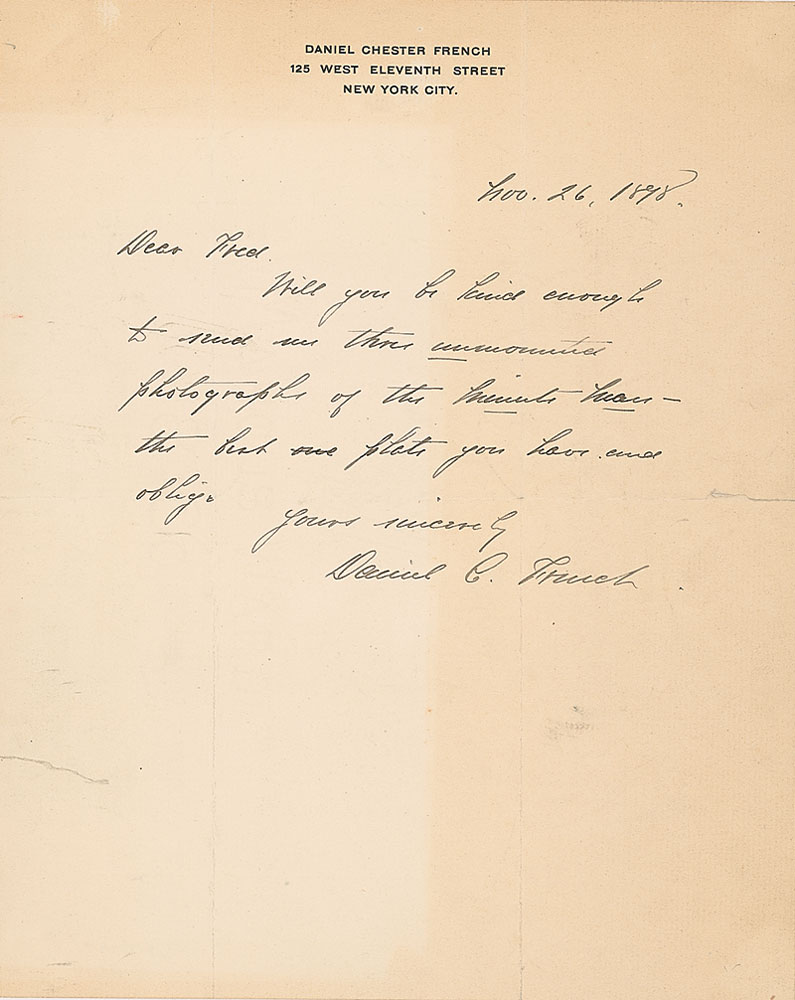 DANIEL CHESTER FRENCH
125 WEST ELEVENTH STREET
NEW YORK CITY.
Nov. 26, 1898.
Dear Fred.
Will you be kind enough
to send me three unmounted
photographs of the Minute Man –
the best one plate you have and
oblige
Yours sincerely
Daniel C. French.